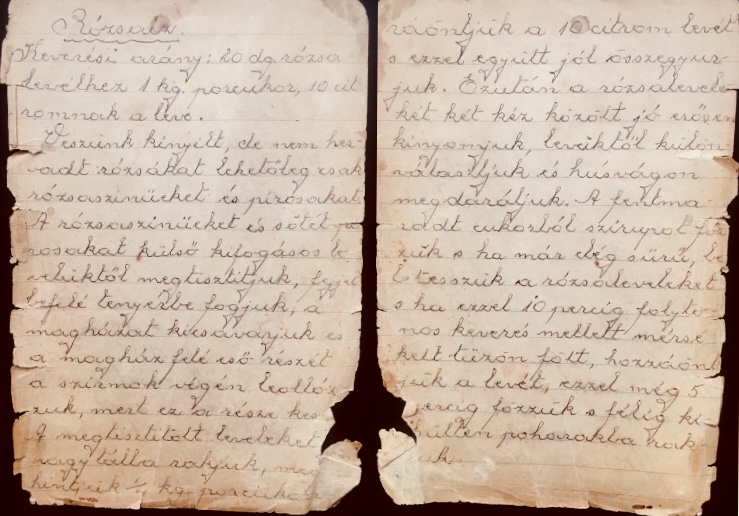 Rózsaíz.
Keverési arány: 20 dg rózsa-
levélhez 1 kg. porcukor, 10 cit
romnak a leve.
Veszünk kinyilt, de nem her
vadt rózsákat lehetőleg csak
rózsaszinüeket és pirosakat.
A rózsaszinüeket és sötét pi
rosakat külső kifogásos le
veleiktől megtisztitjuk, fejjel
befelé tenyérbe fogjuk, a
magházat kicsavarjuk és
a magház felé eső részét
a szirmok végén leolló
zuk, mert ez a része kes
A megtisztitott leveleket
nagy tálba rakjuk, meg
hintjük kg. porcukor
ráöntjük a 10 citrom levét
s ezzel együtt jól összegyur-
juk. Ezután a rózsalevele
két két kéz között jó erősen
kinyomjuk, leveiktől külön
választjuk és húsvágon
megdaráljuk. A fentma-
radt cukorból szirupot főz
zük s ha már elég sürü, be
le tesszük a rózsaleveleket
s ha ezzel 10 percig folyto-
nos keverés mellett mérsé
kelt tüzön főtt, hozzáönt
jük a levét, ezzel még 5
percig főzzük s félig ki-
hülten poharakba rak
juk.